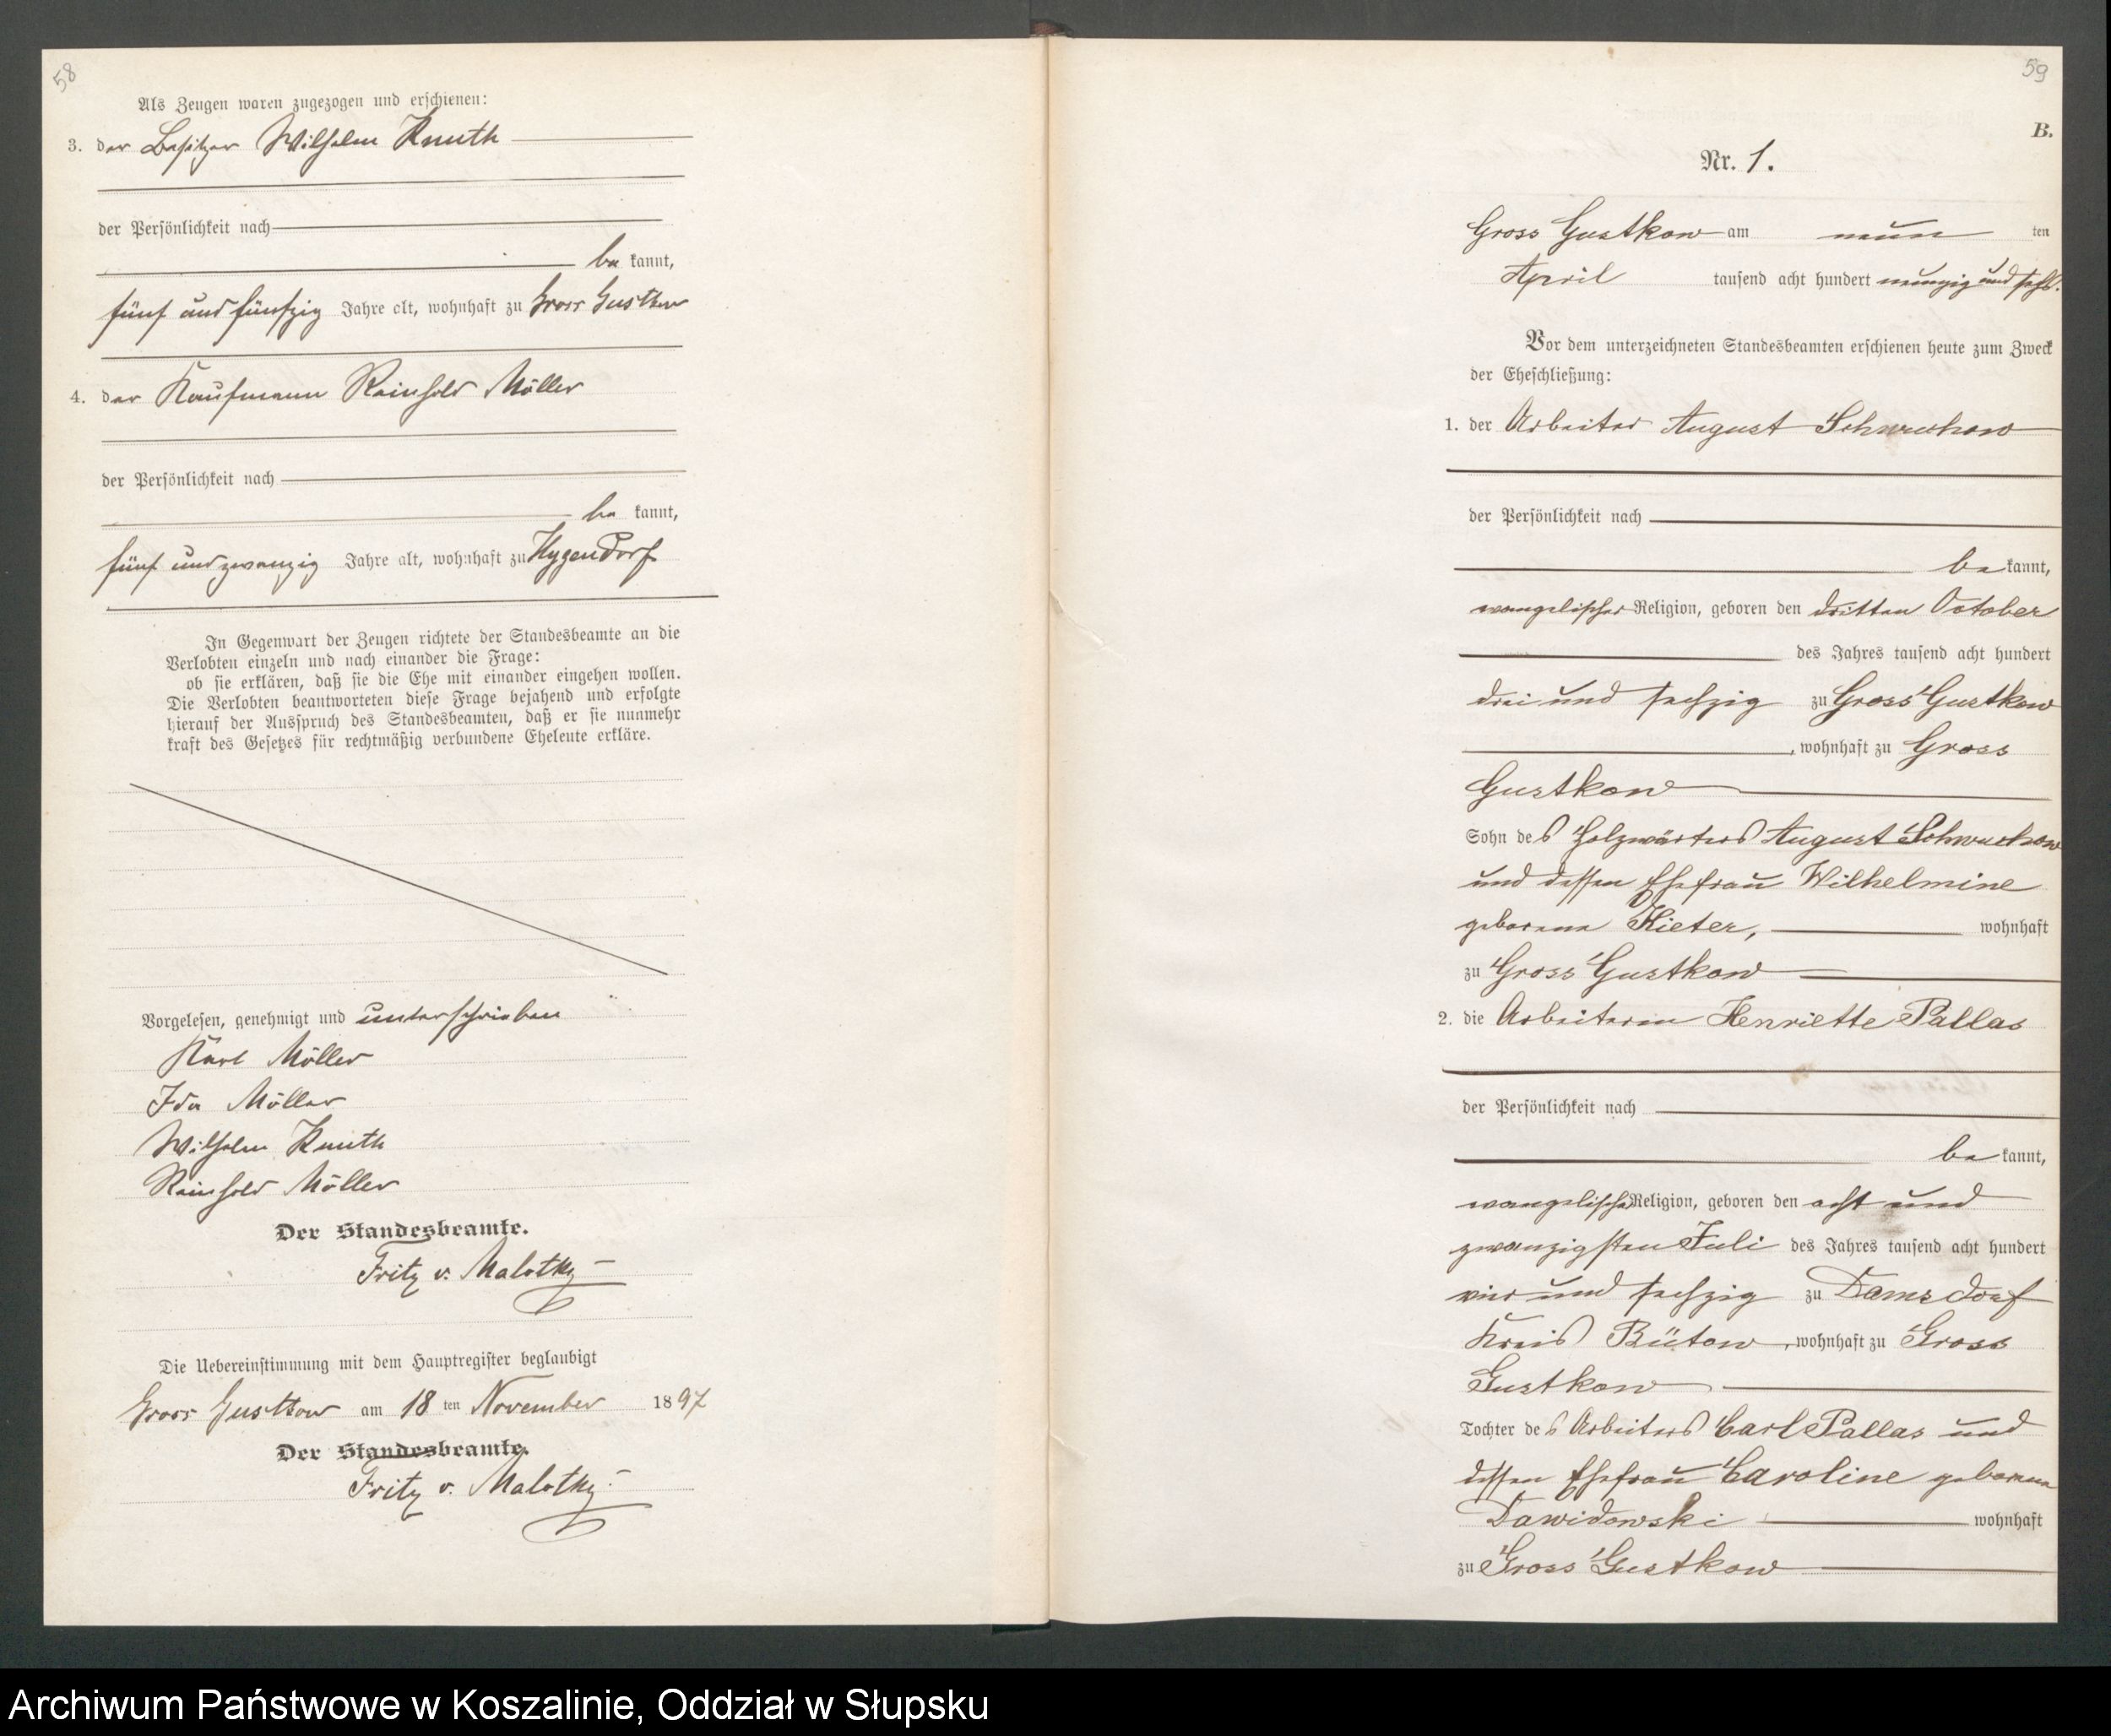 58
Als Zeugen waren zugezogen und erschienen:
3. der Besitzer Wilhelm Knuth
der Persönlichkeit nach
be kannt,
fünf und fünfzig Jahre alt, wohnhaft zu Gross Gustkow
4. der Kaufmann Reinhold Möller
der Persönlichkeit nach
be kannt,
fünf und zwanzig Jahre alt, wohnhaft zu Hygendorf
In Gegenwart der Zeugen richtete der Standesbeamte an die
Verlobten einzeln und nach einander die Frage:
ob sie erklären, daß sie die Ehe mit einander eingehen wollen.
Die Verlobten beantworteten diese Frage bejahend und erfolgte
hierauf der Ausspruch des Standesbeamten, daß er sie nunmehr
kraft des Gesetzes für rechtmäßig verbundene Eheleute erkläre.
Vorgelesen, genehmigt und unterschrieben
Karl Möller
Ida Möller
Wilhelm Knuth
Reinhold Möller
Der Standesbeamte.
Fritz v. Malotky
Die Uebereinstimmung mit dem Hauptregister beglaubigt
Gross Gustkow am 18 ten November 1897
Der Standesbeamte.
Fritz v. Malotky
59
B.
Nr. 1.
Gross Gustkow am neun ten
April tausend acht hundert neunzig und sechs.
Vor dem unterzeichneten Standesbeamten erschienen heute zum Zweck
der Eheschließung:
1. der Arbeiter August Schwuchow
der Persönlichkeit nach
be kannt,
evangelischer Religion, geboren den dritten October
des Jahres tausend acht hundert
drei und sechzig zu Gross Gustkow
, wohnhaft zu Gross
Gustkow
Sohn des Holzwärters August Schwuchow
und dessen Ehefrau Wilhelmine
geborene Kieter, wohnhaft
zu Gross Gustkow
2. die Arbeiterin Henriette Pallas
der Persönlichkeit nach
be kannt,
evangelischer Religion, geboren den acht und
zwanzigsten Juli des Jahres tausend acht hundert
vier und sechzig zu Damsdorf
Kreis Bütow, wohnhaft zu Gross
Gustkow
Tochter des Arbeiters Carl Pallas und
dessen Ehefrau Caroline geborene
Dawidowski wohnhaft
zu Gross Gustkow
Archiwum Państwowe w Koszalinie, Oddział w Słupsku